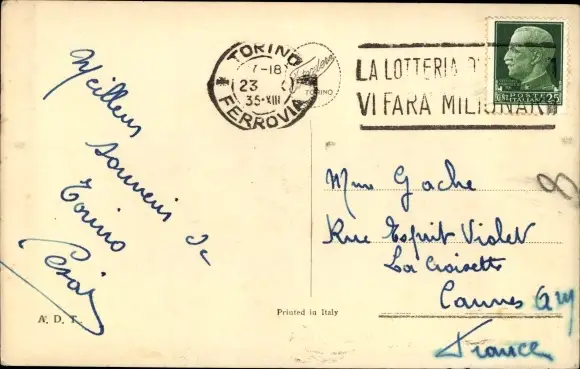 Meilleurs
souvenirs de
Torino
TORINO
17-18
23
35-XIII
FERROVIA
TORINO
LA LOTTERIA D'
VI FARÀ MILIONARI
POSTE
ITALIANE
CENT. 25
Mme Gache
Rue Esprit Violet
La Croisette
Cannes AM
France
8
A. D. T.
Printed in Italy